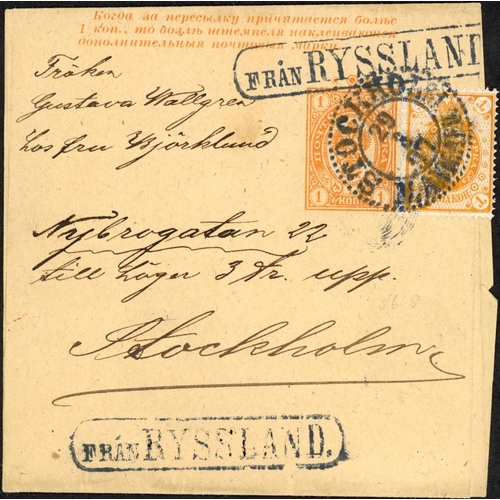 Когда за пересылку причитается болѣе
1 коп., то возлѣ штемпеля наклеиваются
дополнительныя почтовыя марки.
FRÅN RYSSLAND
Fröken
Gustava Wallgren
hos fru Björklund
STOCKHOLM
29
1 1
КОП
Nybrogatan 22
till höger 3 Tr. upp.
Stockholm
FRÅN RYSSLAND.